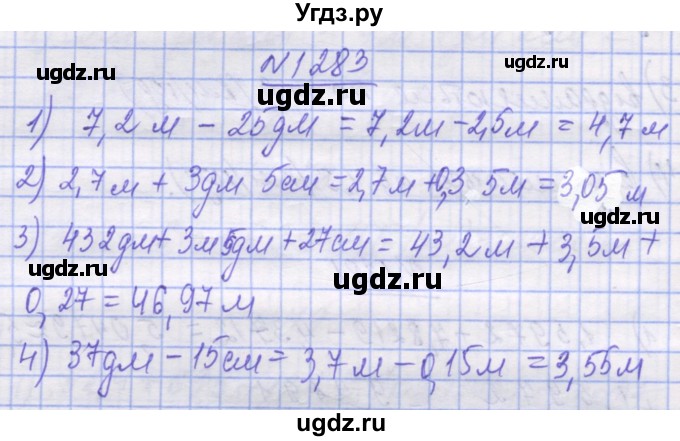 Угдз.ру
№1283
1) 7,2 м − 25дм = 7,2м − 2,5м = 4,7 м
2) 2,7м + 3дм 5см = 2,7м + 0,3 5м = 3,05 м
3) 432дм + 3м 5дм + 27см = 43,2 м + 3,5м +
0,27 = 46,97 м
4) 37дм − 15см = 3,7 м − 0,15м = 3,55м
ugdz.ru
ugdz.ru
ugdz.ru
ugdz.ru
ugdz.ru
ugdz.ru
ugdz.ru
ugdz.ru
ugdz.ru
ugdz.ru
ugdz.ru